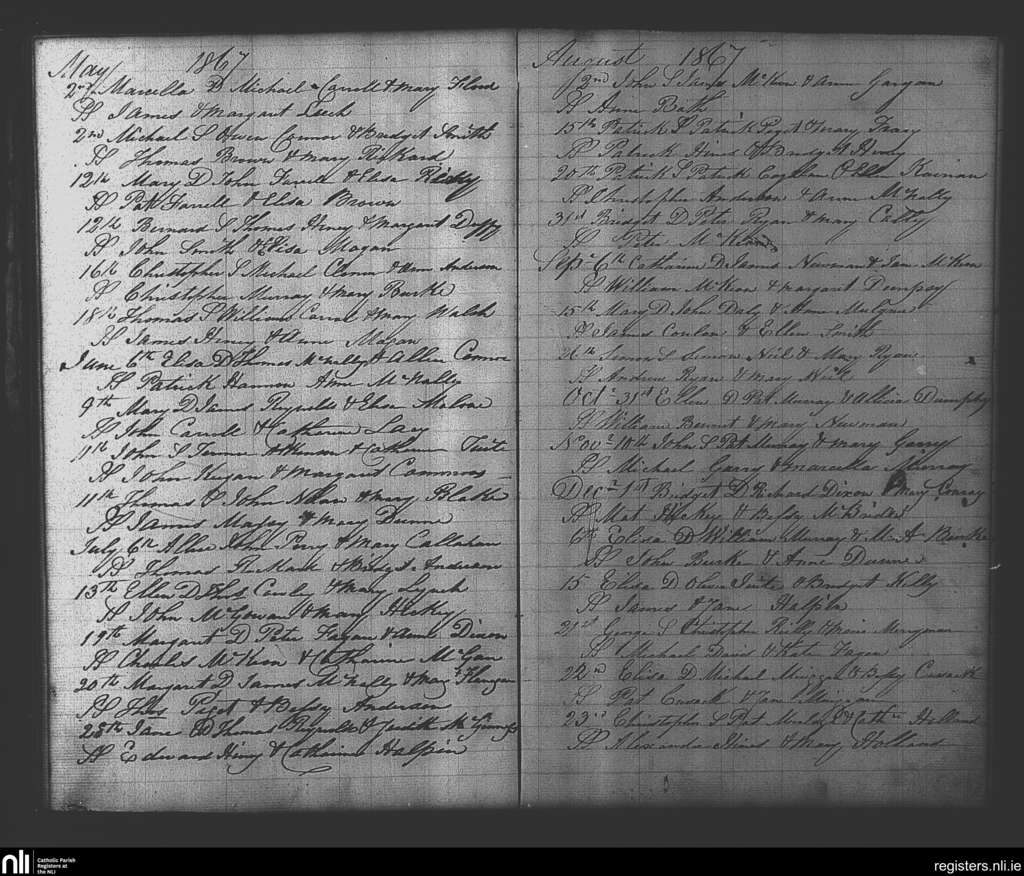 May 1867
2nd Marcella D Michael Carroll & Mary Flood
Ss James & Margaret Leech
2nd Michael S Owen Connor & Bridget Smith
Ss Thomas Brown & Mary Rickard
12th Mary D John Farrell & Elisa
Ss Pat Farrell & Elisa Brown
12th Bernard S Thomas Hiney & Margaret Duffy
Ss John Smith & Elisa Magan
16th Christopher S Michael & Ann Anderson
Ss Christopher Murray & Mary Burke
18th Thomas S William & Mary Walsh
Ss James Hiney & Anne Magan
June 6th Elisa D Thomas McNally & Ellen Connor
Ss Patrick Hannon Anne McNally
9th Mary D James Reynolds & Elisa Malone
Ss John Carroll & Catherine Lacy
11th John S & Catherine Tuite
Ss John Keegan & Margaret Commons
11th Thomas S John & Mary Blake
Ss James & Mary Dunne
July 6th John & Mary Callahan
Ss Thomas & Bridget Anderson
13th Ellen D Thos & Mary Lynch
Ss John McGowan & Mary Hickey
19th Margaret D Peter Fagan & Anne Dixon
Ss Charles McKeon & Catherine McGan
20th Margaret D James McNally & Mary
Ss Thos Pigot & Betsy Anderson
28th Jane D Thomas Reynolds & Judith
Ss Edward Hiney & Catherine Halpin
August 1867
2nd John S James McKeon & Anne Gargan
Ss Anne
15th Patrick S Patrick Pigot & Mary Tracy
Ss Patrick Hines & Bridget Henry
20th Patrick S Patrick Coghlan & Ellen Keinan
Ss Christopher Anderson & Anne McNally
31st Bridget D Peter Ryan & Mary
Ss Peter McKeon
Sepr 6th Catharine D James Newman & Jane McKeon
Ss William McKeon & Margaret Dempsey
15th Mary D John Daly & Anne
Ss James Conlon & Ellen Smith
26th Simon S Simon Neil & Mary Ryan
Ss Andrew Ryan & Mary Neil
Octr 31st Ellen D Pat Murray & Allicia Dumphy
Ss William Bennet & Mary Newman
Novr 10th John S Pat Murray & Mary Garry
Ss Michael Garry & Marcella Murray
Decr 1st Bridget D Richard Dixon & Mary Conray
Ss Mat Hickey & Betsy McBride
6th Elisa D William Murray & M A Burke
Ss John Burke & Anne Dunne
15 Elisa D Oliver Tuite & Bridget Kelly
Ss James & Jane Halpin
21st George S Christopher Reilly & Maria Merryman
Ss Michael Davis & Kate Fagan
22nd Elisa D Michael & Betsy Cusack
Ss Pat Cusack & Jane
23rd Christopher S Pat & Cathne Holland
Ss Alexander Hines & Mary Holland
nli Catholic Parish Registers at the NLI
registers.nli.ie